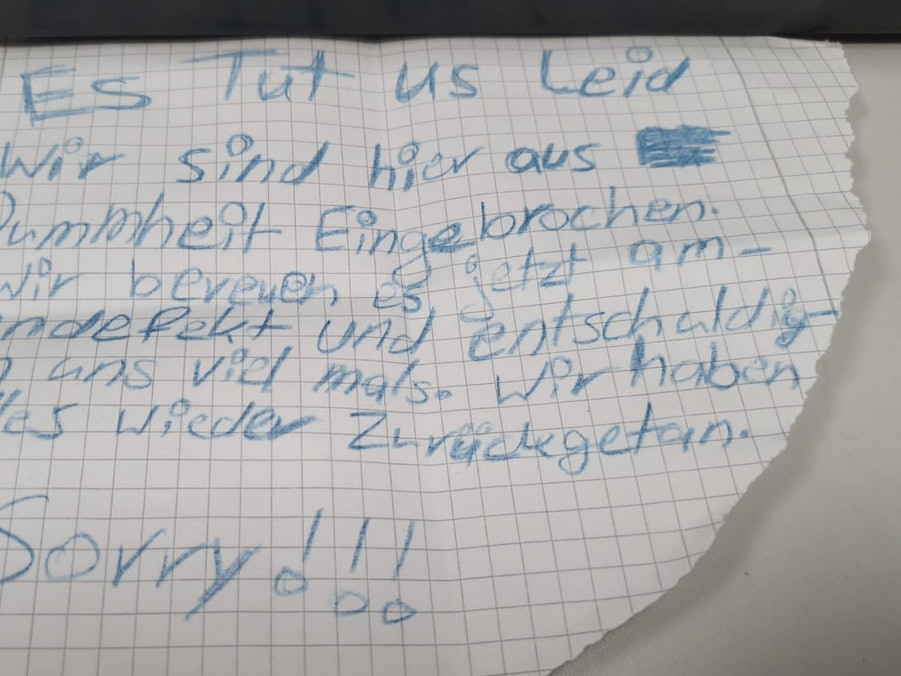 Es Tut us Leid
Wir sind hier aus
Dummheit Eingebrochen.
Wir bereuen es jetzt am-
und entschaldig-
uns viel mals. Wir haben
wieder Zurückgetan.
Sorry!!!